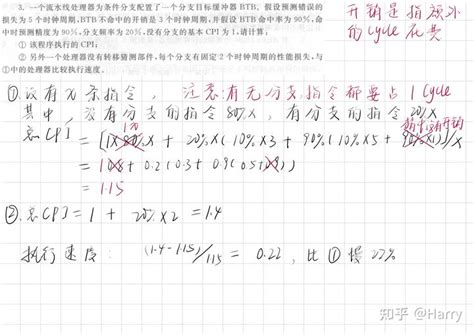 3. 一个流水线处理器为条件分支配置了一个分支目标缓冲器 BTB。假设预测错误的
损失为 5 个时钟周期,BTB 不命中的开销是 3 个时钟周期,并假设 BTB 命中率为 90%,命
中时预测精度为 90%,分支频率为 20%,没有分支的基本 CPI 为 1,请计算:
① 该程序执行的 CPI;
② 另外一个处理器没有转移猜测部件,每个分支有固定 2 个时钟周期的性能损失,与
①中的处理器比较执行速度。
开销是指额外
的cycle花费
①设有X条指令, 注意:有无分支指令都要占1Cycle
其中, 没有分支的指令80%X, 有分支的指令20%X
总CPI = [ X + 20%X(10%X3 + 90%(10%X5 + )]/X
= 1 + 0.2(0.3+0.9(0.5+ ))
= 1.15
②.总CPI = 1 + 20%X2 = 1.4
执行速度: (1.4-1.15)/1.15 = 0.22, 比①慢22%
知乎 @Harry